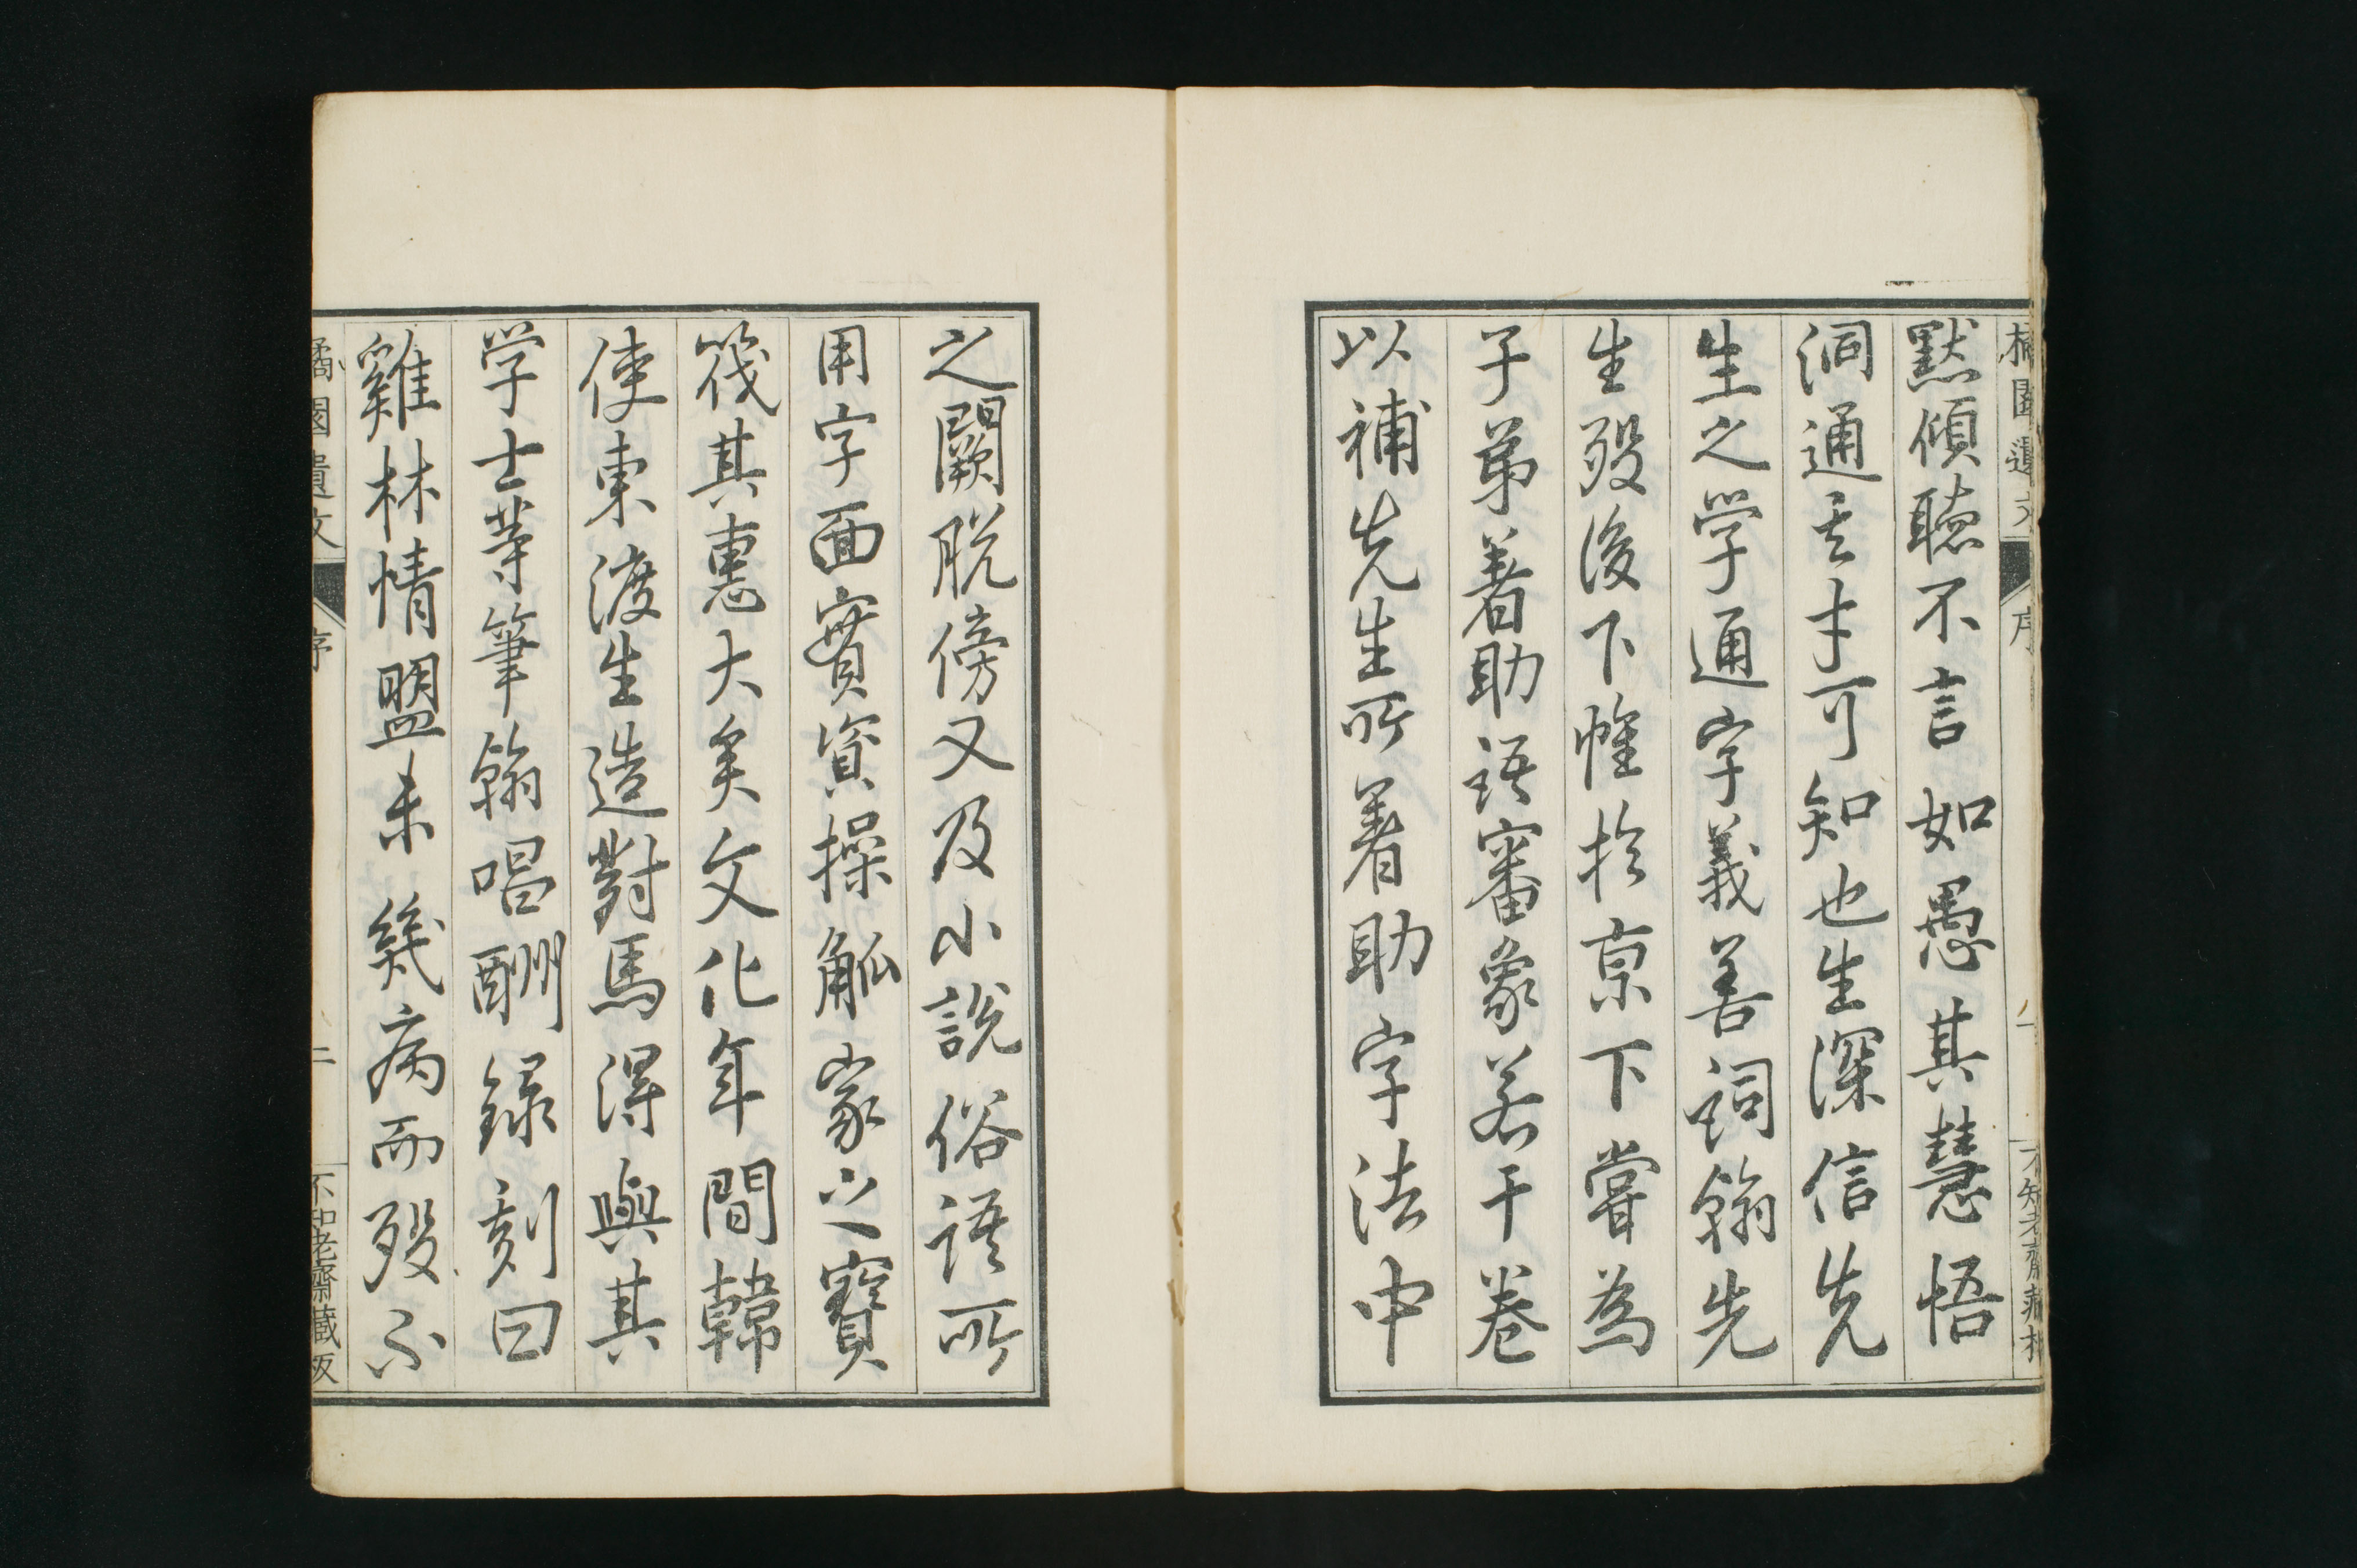 橘園遺文
序
一
不知老齋藏板
默傾聽不言如愚其慧悟
洞通之才可知也生深信先
生之学通字義善詞翰先
生歿後下帷於京下嘗為
子弟著助語審象若干卷
以補先生所著助字法中
之闕脱傍又及小説俗語所
用字面實資操觚家之寶
筏其惠大矣文化年間韓
使東渡生造對馬得與其
学士等筆翰唱酬録刻曰
雞林情盟未幾病而歿不
橘園遺文
序
二
不知老齋藏板